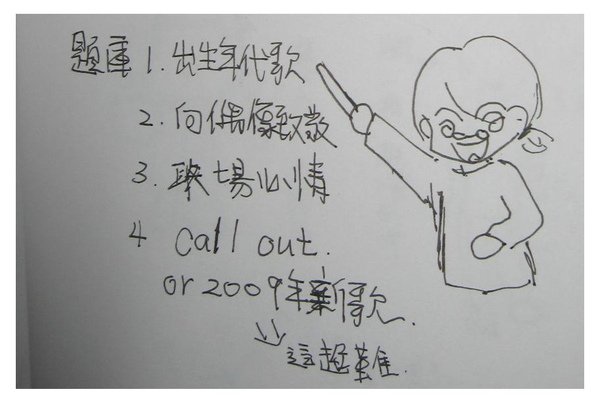 題庫 1. 出生年代歌
2. 向偶像致敬
3. 職場心情
4 call out.
or 2009年新歌.
這超難.